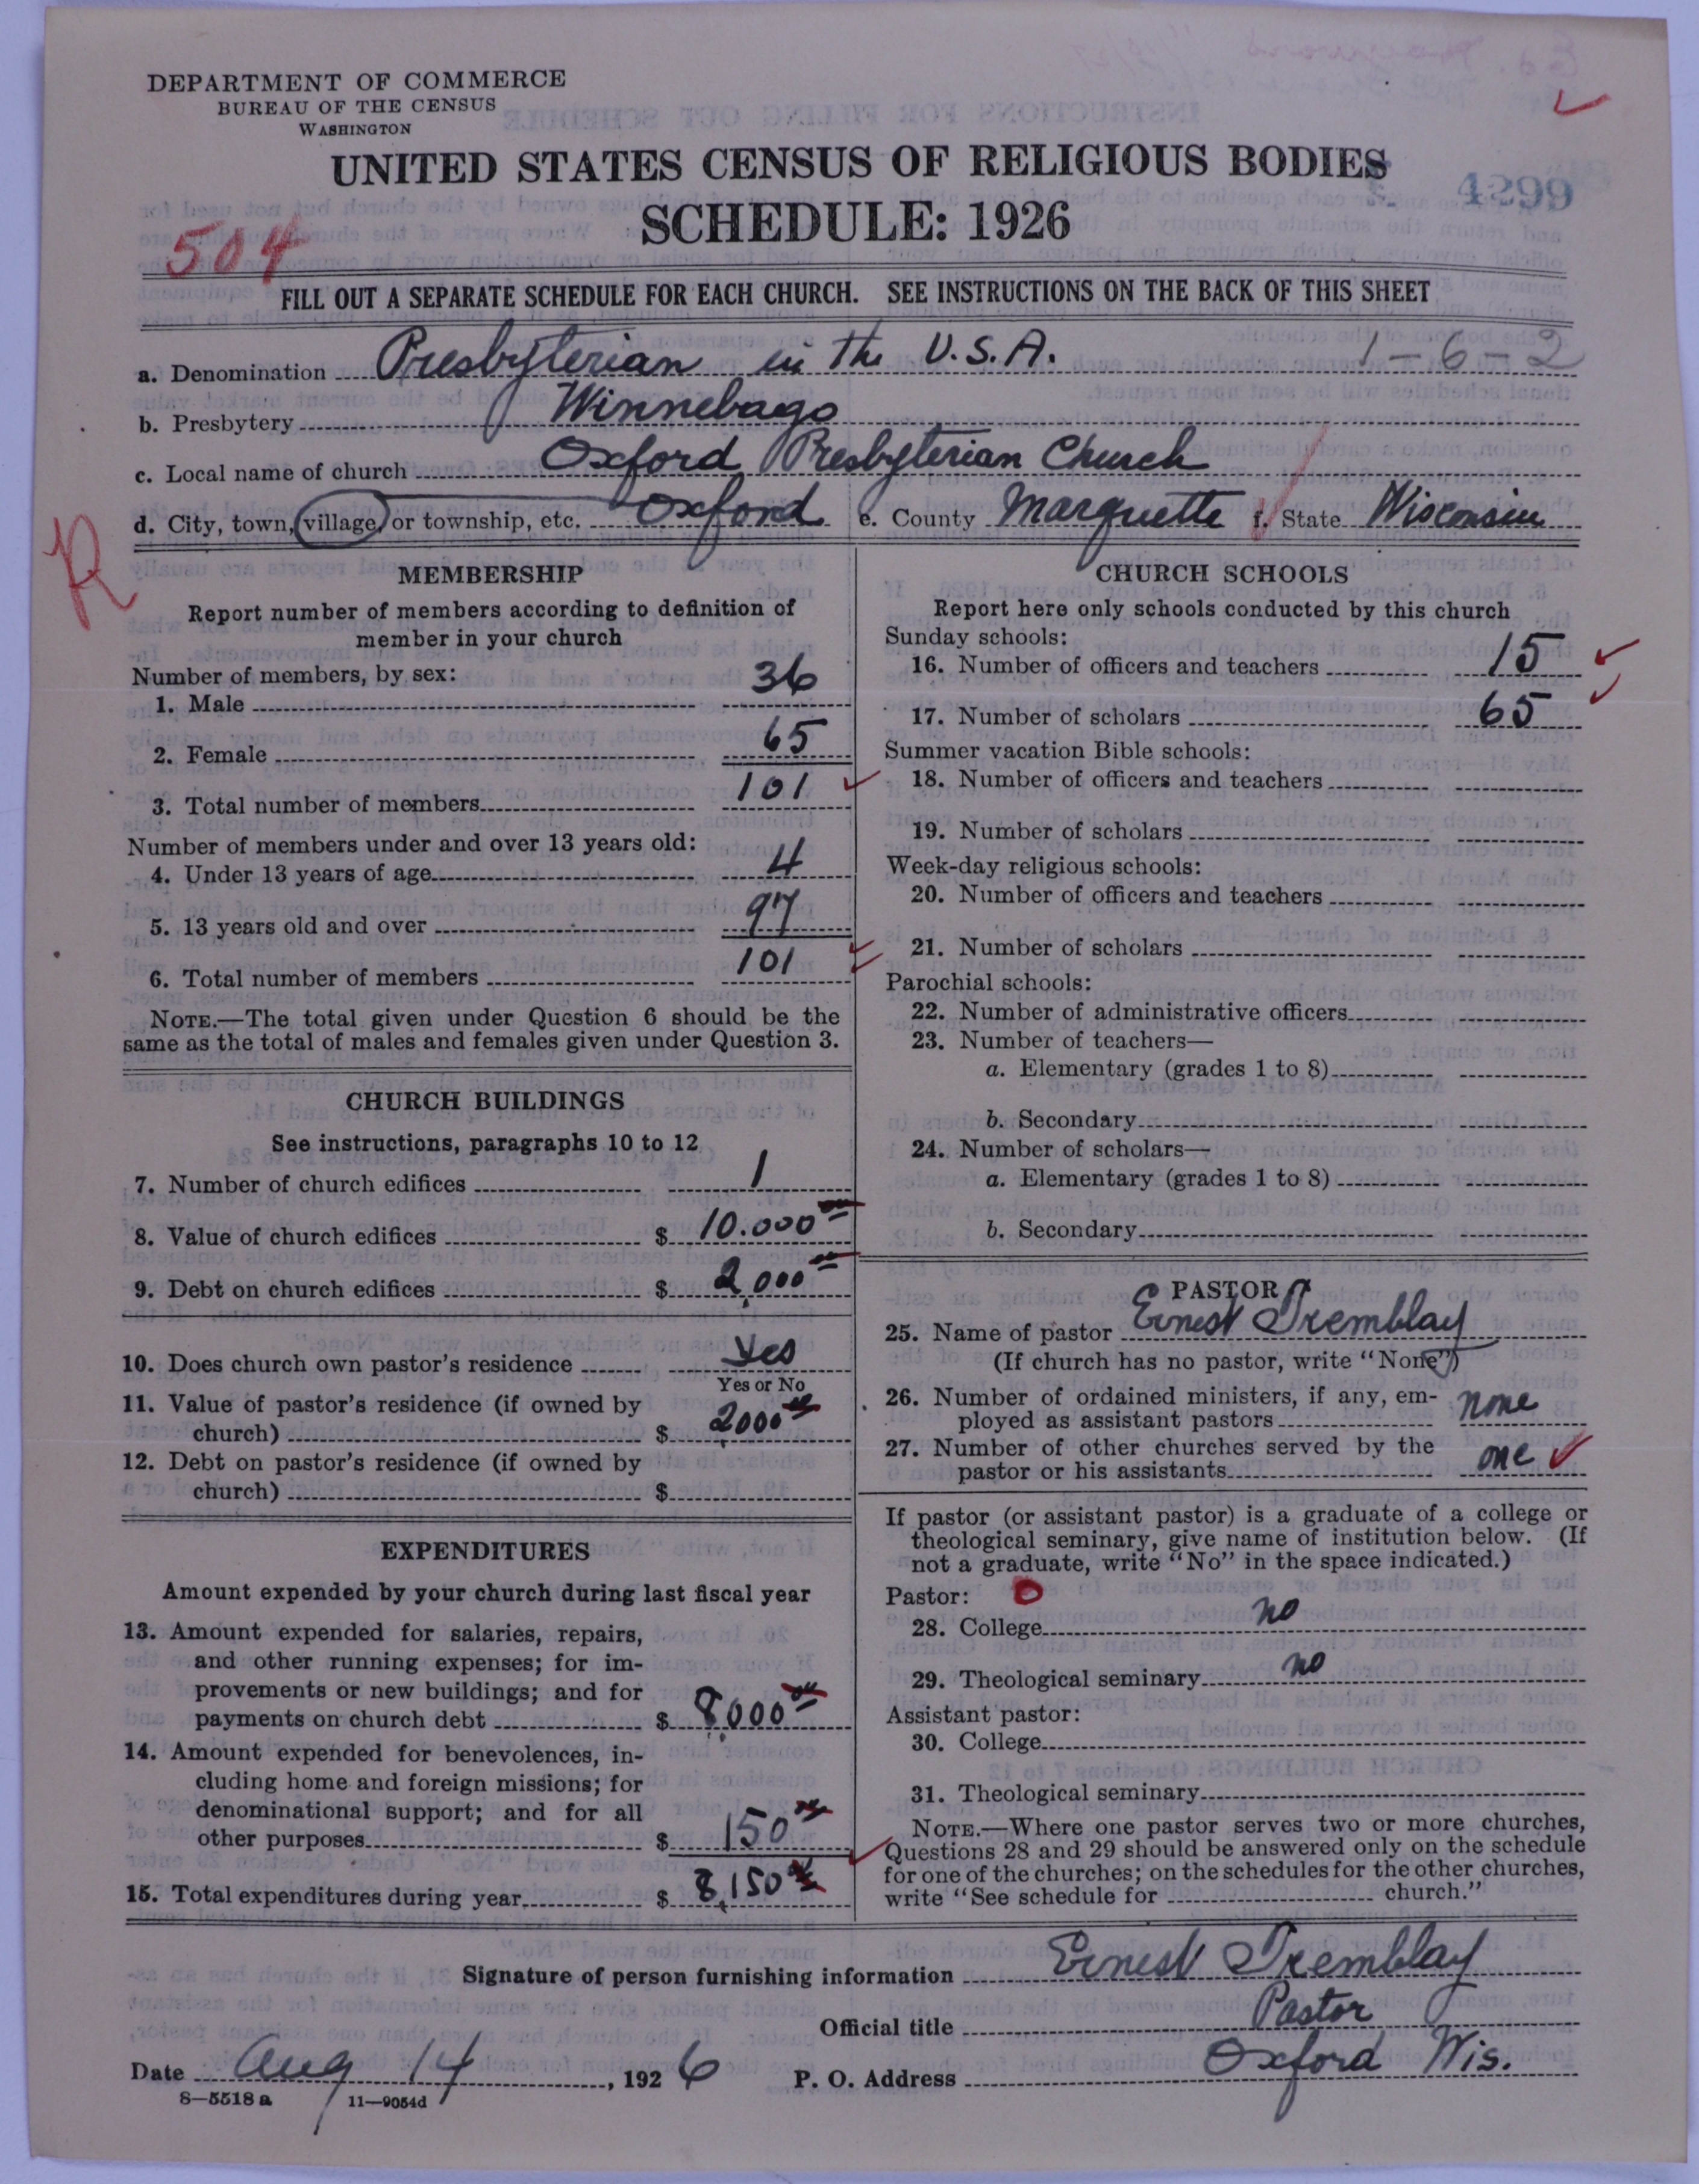 DEPARTMENT OF COMMERCE
BUREAU OF THE CENSUS
WASHINGTON
UNITED STATES CENSUS OF RELIGIOUS BODIES
SCHEDULE: 1926
4299
504
FILL OUT A SEPARATE SCHEDULE FOR EACH CHURCH. SEE INSTRUCTIONS ON THE BACK OF THIS SHEET
a. Denomination Presbyterian in the U.S.A. 1-6-2
b. Presbytery Winnebago
c. Local name of church Oxford Presbyterian Church
d. City, town, village, or township, etc. Oxford e. County Marquette f. State Wisconsin
R
MEMBERSHIP
Report number of members according to definition of
member in your church
Number of members, by sex:
1. Male 36
2. Female 65
3. Total number of members 101
Number of members under and over 13 years old:
4. Under 13 years of age 4
5. 13 years old and over 97
6. Total number of members 101
NOTE.—The total given under Question 6 should be the
same as the total of males and females given under Question 3.
CHURCH BUILDINGS
See instructions, paragraphs 10 to 12
7. Number of church edifices 1
8. Value of church edifices $ 10.000 00
9. Debt on church edifices $ 2,000 00
10. Does church own pastor's residence Yes
Yes or No
11. Value of pastor's residence (if owned by
church) $ 2000 00
12. Debt on pastor's residence (if owned by
church) $
EXPENDITURES
Amount expended by your church during last fiscal year
13. Amount expended for salaries, repairs,
and other running expenses; for im-
provements or new buildings; and for
payments on church debt $ 8000 00
14. Amount expended for benevolences, in-
cluding home and foreign missions; for
denominational support; and for all
other purposes $ 150 00
15. Total expenditures during year $ 8,150 00
CHURCH SCHOOLS
Report here only schools conducted by this church
Sunday schools:
16. Number of officers and teachers 15
17. Number of scholars 65
Summer vacation Bible schools:
18. Number of officers and teachers
19. Number of scholars
Week-day religious schools:
20. Number of officers and teachers
21. Number of scholars
Parochial schools:
22. Number of administrative officers
23. Number of teachers—
a. Elementary (grades 1 to 8)
b. Secondary
24. Number of scholars—
a. Elementary (grades 1 to 8)
b. Secondary
PASTOR
25. Name of pastor Ernest Tremblay
(If church has no pastor, write "None")
26. Number of ordained ministers, if any, em-
ployed as assistant pastors none
27. Number of other churches served by the
pastor or his assistants one
If pastor (or assistant pastor) is a graduate of a college or
theological seminary, give name of institution below. (If
not a graduate, write "No" in the space indicated.)
Pastor: 0
28. College no
29. Theological seminary no
Assistant pastor:
30. College
31. Theological seminary
NOTE.—Where one pastor serves two or more churches,
Questions 28 and 29 should be answered only on the schedule
for one of the churches; on the schedules for the other churches,
write "See schedule for church."
Signature of person furnishing information Ernest Tremblay
Official title Pastor
Date Aug 14, 1926 P. O. Address Oxford Wis.
8—5518 a 11—9054d